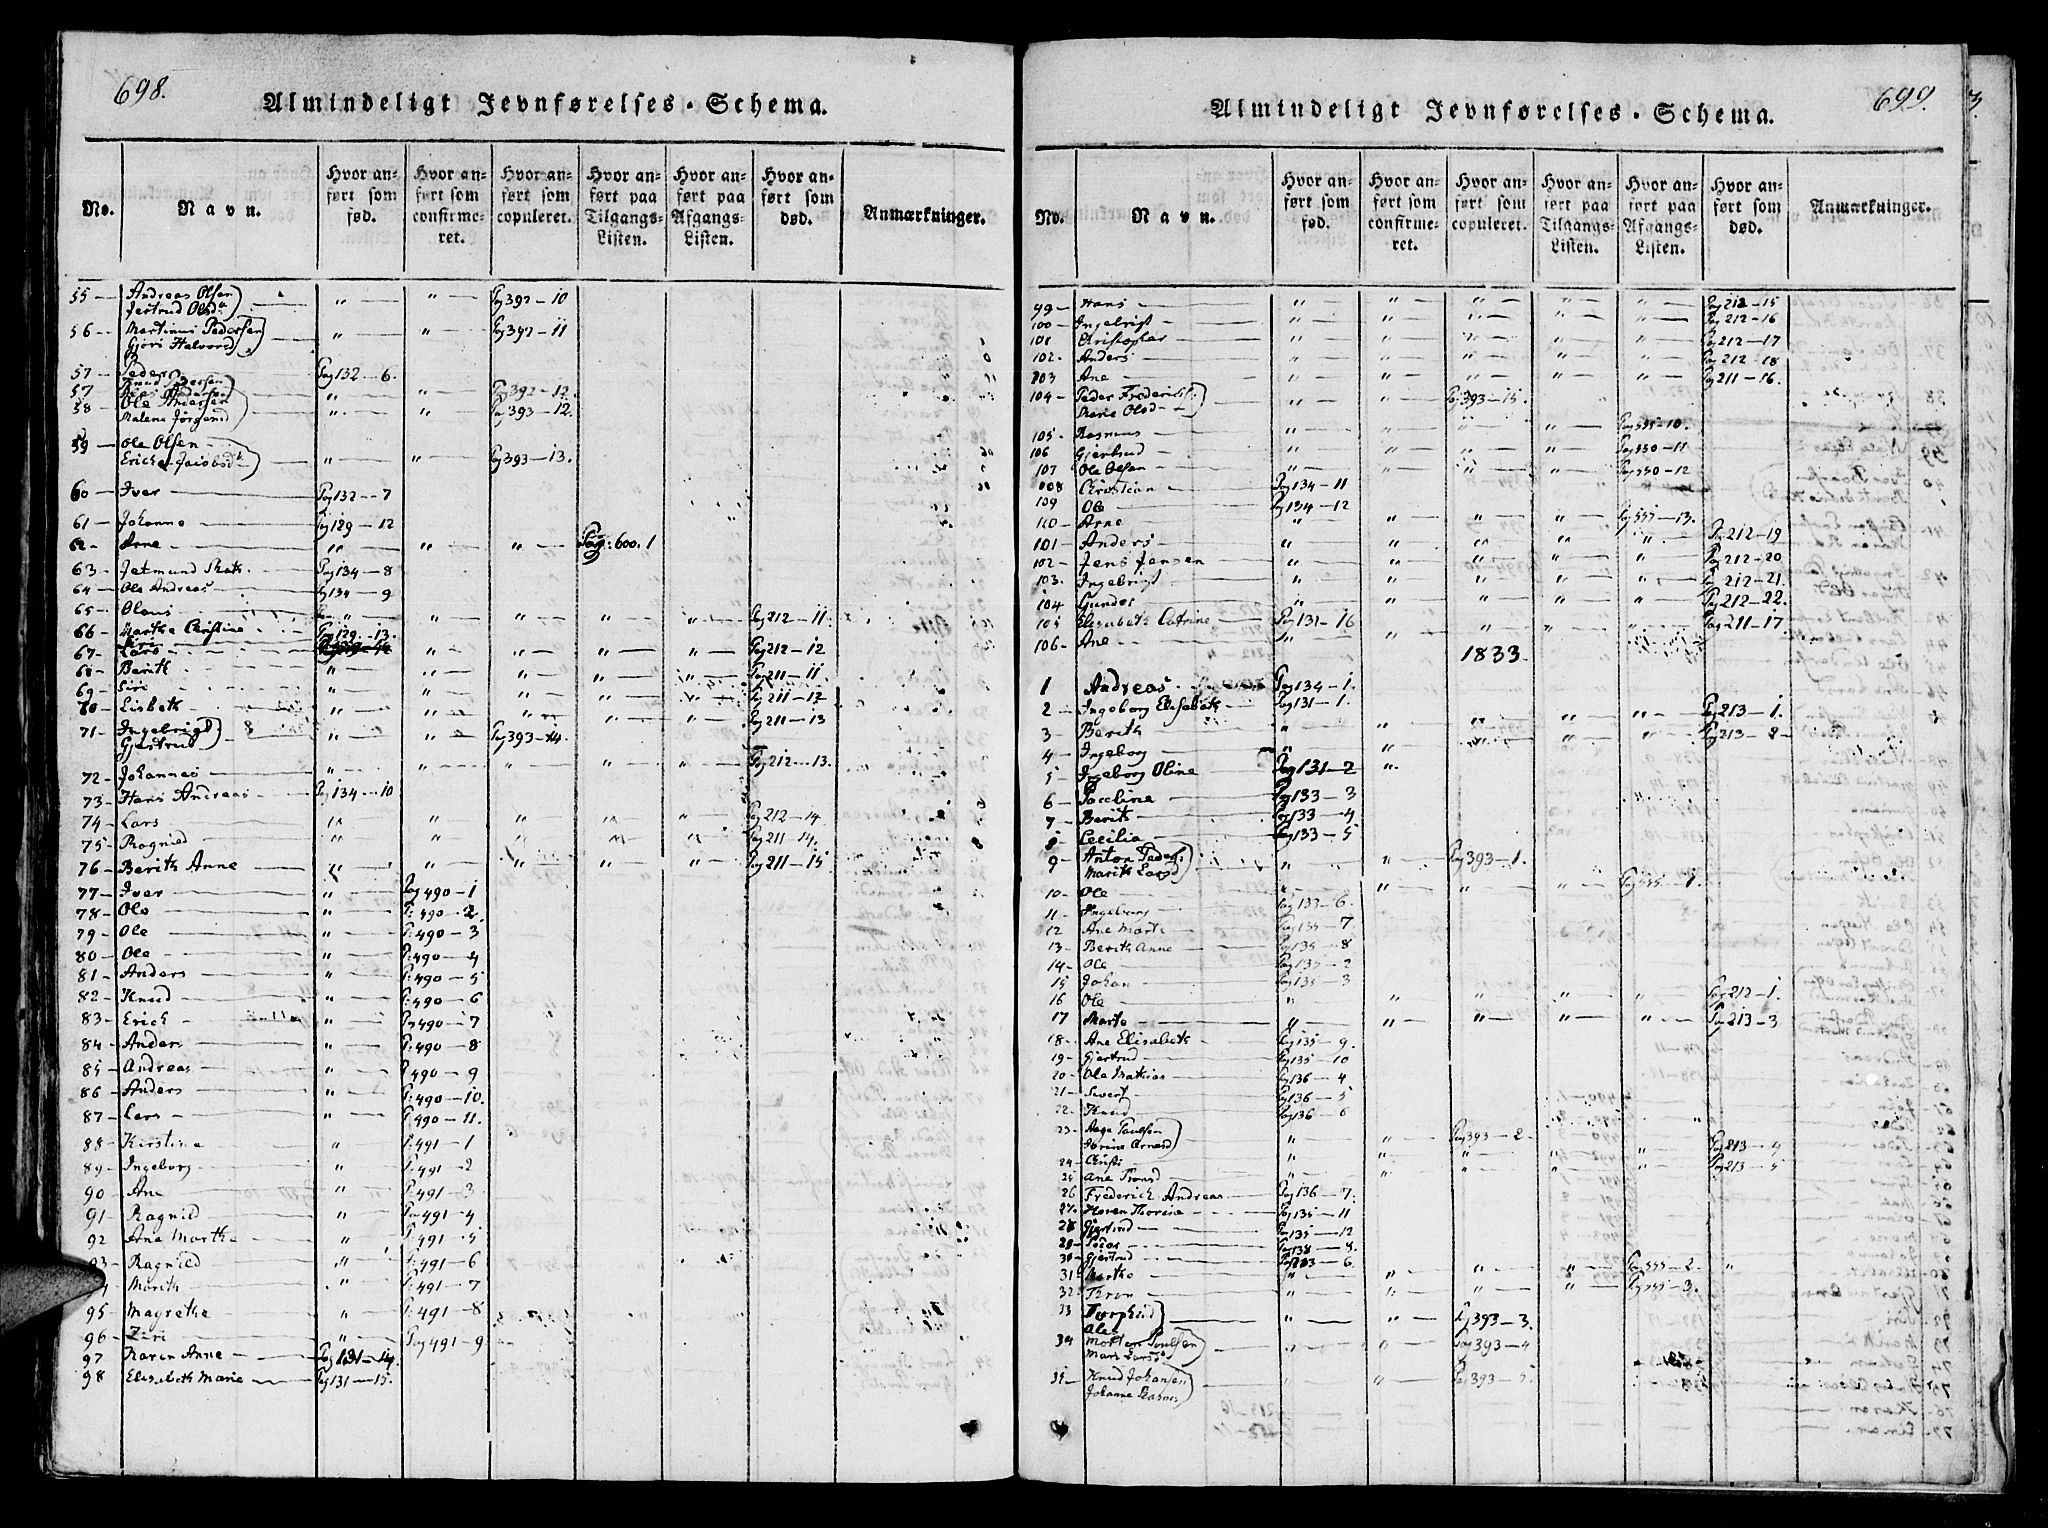 698.
Almindeligt Jevnførelses-Schema.
No.
Navn.
Hvor anført som fød.
Hvor anført som confirmeret.
Hvor anført som copuleret.
Hvor anført paa Tilgangs-Listen.
Hvor anført paa Afgangs-Listen.
Hvor anført som død.
Anmærkninger.
55 — Andreas Olsen " " Pag 392 — 10
Jertrud Olsd
56 — Martinus Pedersen " " Pag 392 — 11
Gjöri Halvorsd
57 — Peder Pag 132 — 6.
57 Knud Iversen " " Pag 392 — 12.
58 — Ole Andersen " " Pag 393 — 12.
Malene Jørgensd
59 — Ole Olsen
Erich Jacobsd " " Pag 393 — 13.
60 — Iver Pag 132 — 7
61 — Johanna Pag 129 — 12
62 — Arne " " " Pag: 600. 1
63 — Jetmund Pag 134 — 8
64 — Ole Andreas Pag 134 — 9
65 — Olaus " " " " " Pag 212 — 11.
66 — Marthe Christine Pag 129 — 13.
67 — Lars " " " " Pag 212 — 12
68 — Berith " " " " " Pag 211 — 11.
69 — Siri " " " " " Pag 211 — 12
70 — Lisbeth " " " " " Pag 211 — 13
71 — Ingebrigt " " Pag 393 — 14.
Gjertrud
72 — Johannes " " " " " Pag 212 — 13.
73 — Hans Andreas Pag 134 — 10
74 — Lars " " " " " Pag 212 — 14
75 — Ragnied " " " " " Pag 211 — 14.
76 — Berith Anne " " " " " Pag 211 — 15.
77 — Iver " Pag 490 — 1
78 — Ole " P: 490 — 2.
79 — Ole " P: 490 — 3
80 — Ole " P: 490 — 4
81 — Anders " P: 490 — 5
82 — Knud " P: 490 — 6
83 — Erich " Pag 490 — 7
84 — Anders " P: 490 — 8
85 — Andreas " P: 490 — 9
86 — Anders " P: 490 — 10.
87 — Lars " P: 490 — 11.
88 — Kirstine " P: 491 — 1
89 — Ingeborg " P: 491 — 2
90 — Ane " P: 491 — 3
91 — Ragnied " P: 491 — 4
92 — Ane Marthe " P: 491 — 5
93 — Ragnied " P: 491 — 6
Marith " P: 491 — 7
95 — Magrethe " P: 491 — 8
96 — Ziri " Pag 491 — 9
97 — Karen Anne Pag 131 — 14.
98 — Elisabeth Marie Pag 131 — 15.
699.
Almindeligt Jevnførelses-Schema.
No.
Navn.
Hvor anført som fød.
Hvor anført som confirmeret.
Hvor anført som copuleret.
Hvor anført paa Tilgangs-Listen.
Hvor anført paa Afgangs-Listen.
Hvor anført som død.
Anmærkninger.
99 — Hans " " " " " Pag 212 — 15
100 — Ingebrigt " " " " " Pag 212 — 16
101 Christopher " " " " " Pag 212 — 17
102. Anders " " " " " Pag 212 — 18
103 Ane " " " " " Pag 211 — 16.
104 — Peder Frederichs " " Pag 393 — 15.
Marie Olsd
105. Rasmus " " " " Pag 551 — 10.
106 Gjertrud " " " " Pag 550 — 11
107 Ole Olsen " " " " Pag 550 — 12
108 Christian Pag 134 — 11
109 Ole Pag 134 — 12
110 — Arne " " " " Pag 555 — 13.
101 — Anders " " " " " Pag 212 — 19
102 — Jens Jensen " " " " " Pag 212 — 20
103. Ingebrigt " " " " " 212 — 21.
104 Gunder " " " " " Pag 212 — 22.
105 Elisabeth Catrine Pag 131 — 16
106 — Ane " " " " Pag 211 — 17
1833.
1 Andreas Pag 134 — 1.
2 — Ingeborg Elisabeth Pag 131 — 1.
3 — Berith " " " " " Pag 213 — 1.
4 — Ingeborg " " " " " Pag 213 — 2
5 — Ingeborg Oline Pag 131 — 2
6 — Pauline Pag 133 — 3
7 — Berith Pag 133 — 4
8 — Cecilia Pag 133 — 5
9 — Anton Peders " " Pag 393 — 1.
Marith Larsd
10 — Ole " " " " Pag 555 — 1.
11 — Ingeborg Pag 133 — 6.
12 Ane Marte Pag 135 — 7
13 — Berith Anne Pag 135 — 8
14 — Ole Pag 135 — 2
15 Johan Pag 135 — 3
16 Ole " " " " " Pag 212 — 1.
17 Marte " " " " " Pag 213 — 3
18 — Ane Elisabeth Pag 135 — 9.
19 — Gjertrud Pag 135 — 10
20 — Ole Mathias Pag 136 — 4
21 — Sivert Pag 136 — 5
22 — Knud Pag 136 — 6
23 — Aage Paulsen " " Pag 393 — 2.
24 — " " " " " Pag 213 — 4
25 Ane " " " " " Pag 213 — 5
26 Frederich Andreas Pag 136 — 7.
27. Maren Thorine Pag 135 — 11
28 Gjertrud Pag 135 — 12
29 — Peder Pag 138 — 8.
30 — Gjertrud Pag 213 — 6.
31 Marthe " " " " Pag 555 — 2. "
32 — Thron " " " " Pag 555 — 3.
33 " " Pag 393 — 3.
34 Morten Poulsen " " Pag 393 — 4
Mari Larsd
35 — Knud Johansen " " Pag 393 — 5.
Johanne Rasmus